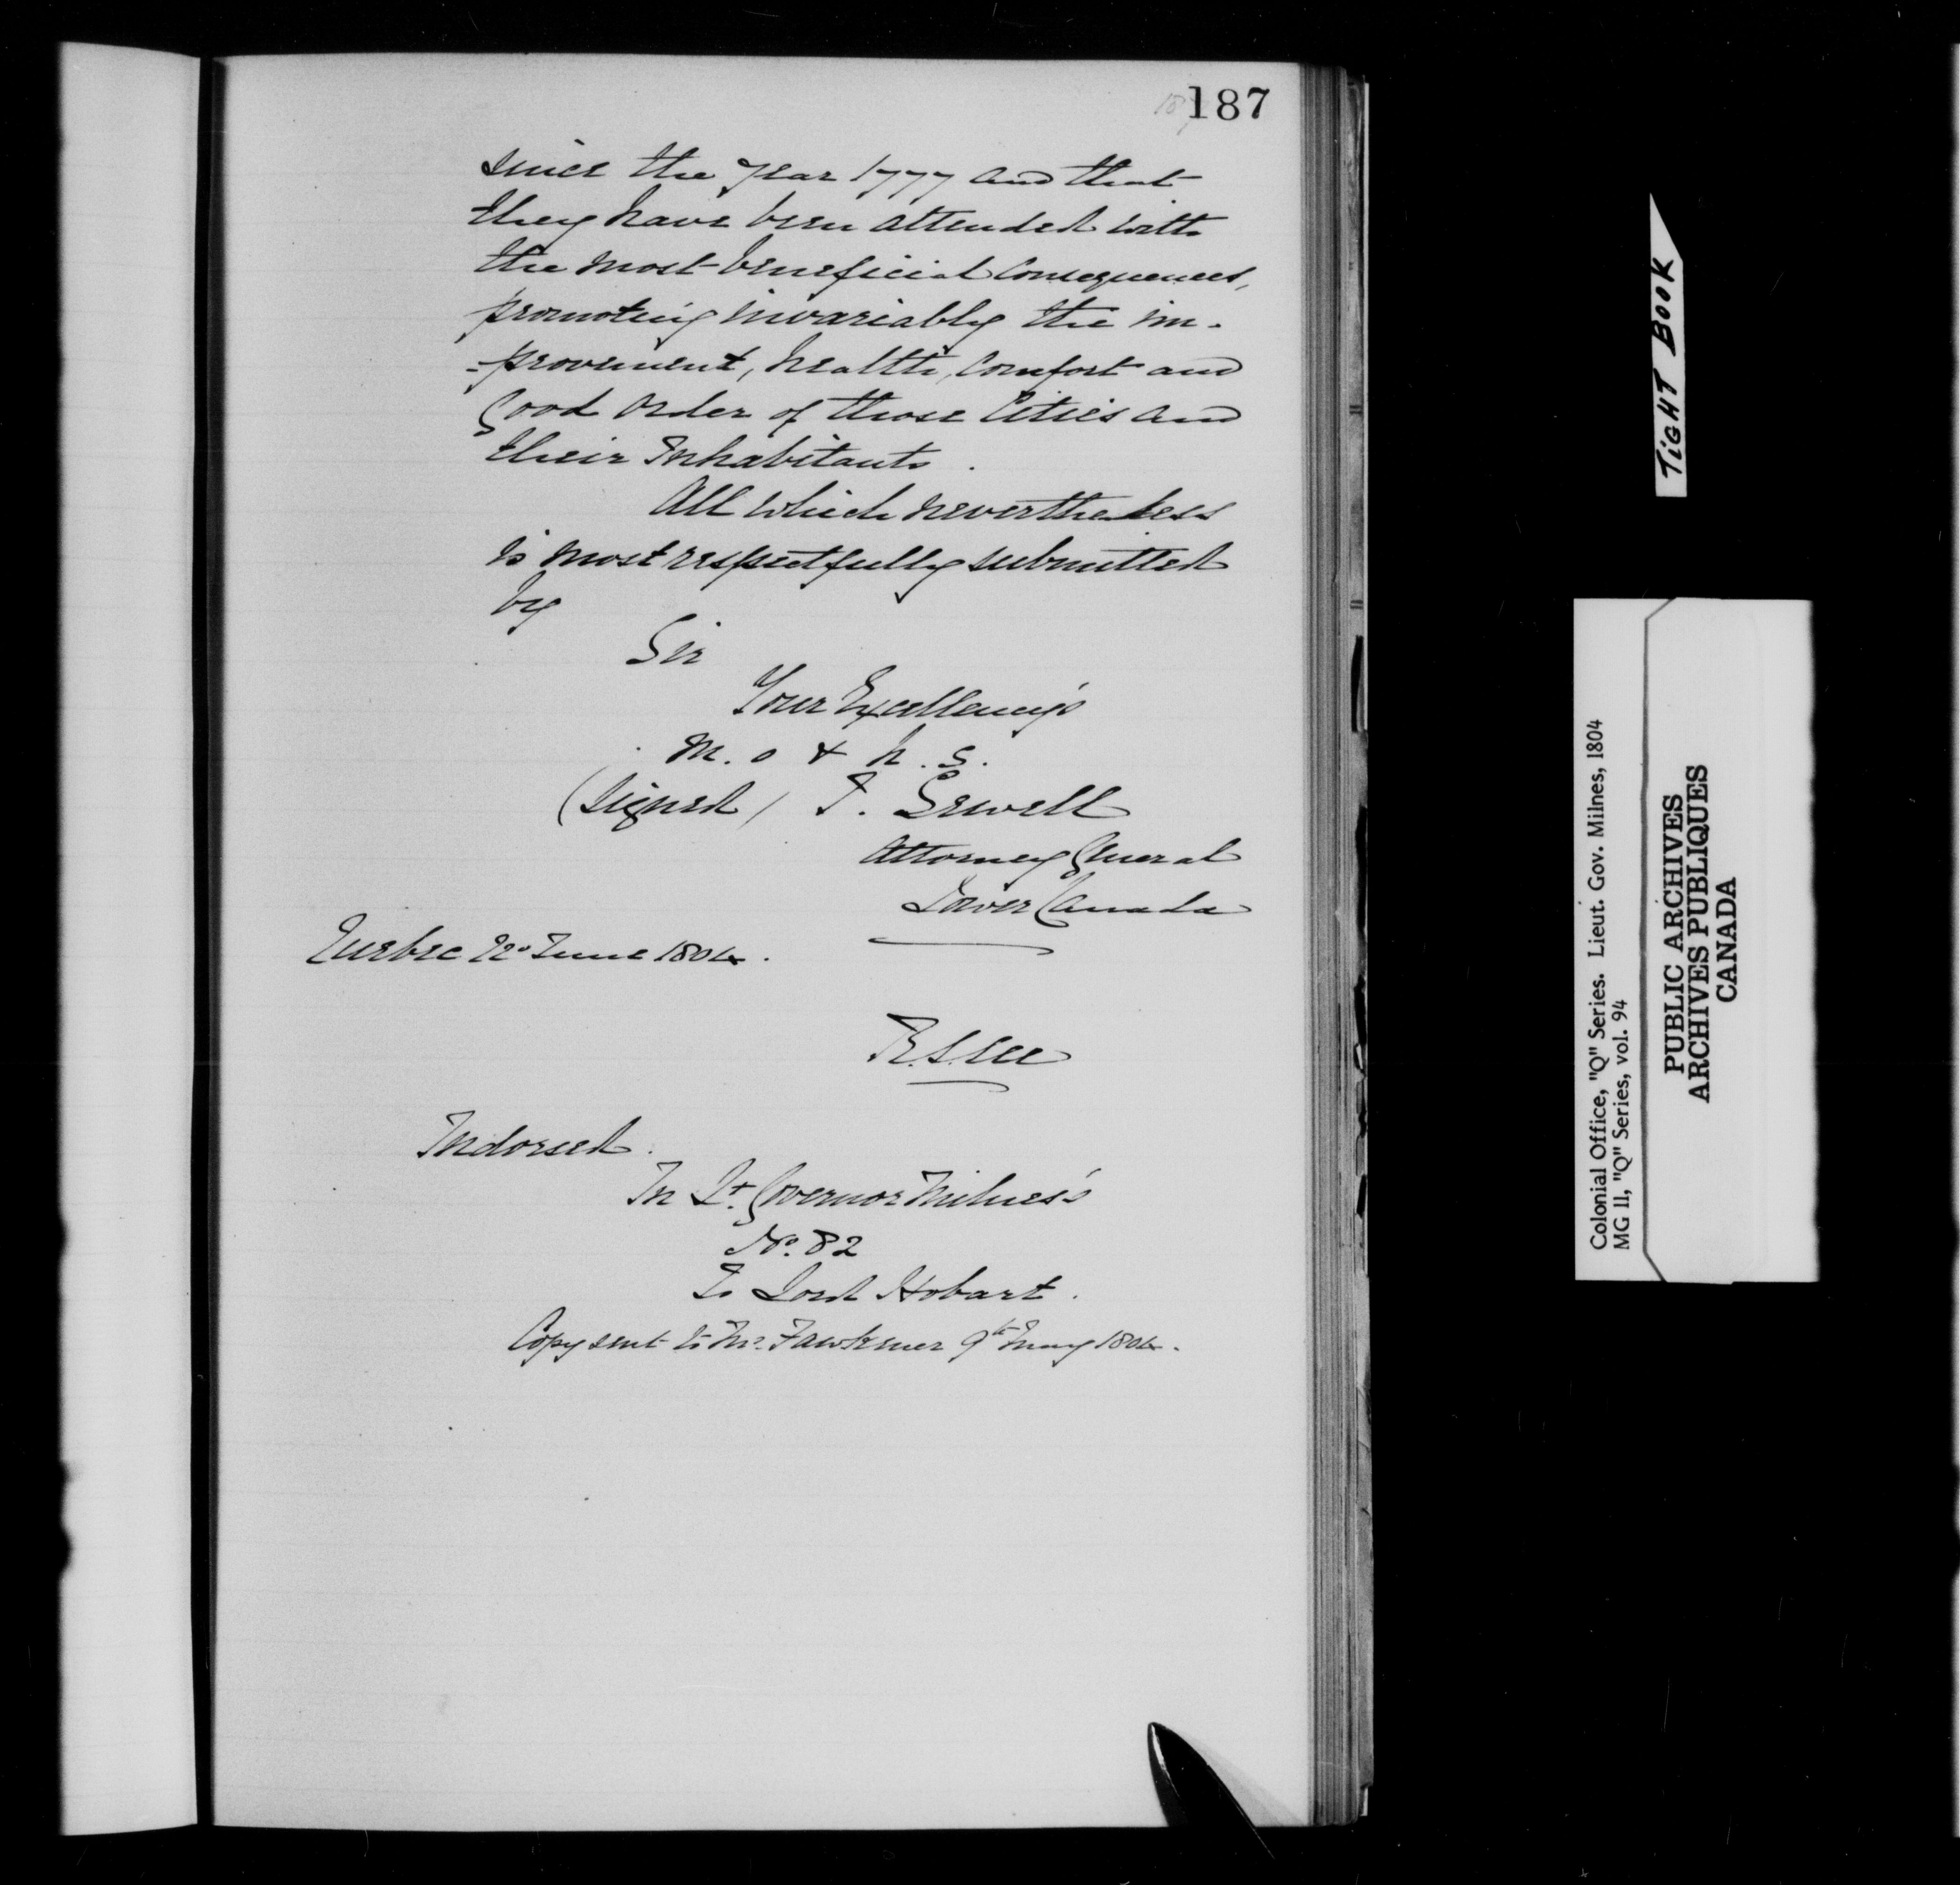 187
since the year 1777 and that
they have been attended with
the most beneficial consequences,
promoting invariably the im-
-provement, health, comfort and
Good order of those Cities and
their Inhabitants.
All which nevertheless
is most respectfully submitted
by
Sir
Your Excellency's
M. o & h. S.
(Signed) J. Sewell
Attorney General
Lower Canada
Quebec 22d June 1804.
Indorsed.
In Lt. Governor Milnes's
No. 82
To Lord Hobart.
Copy sent to Mr. Fawkener 9th May 1804.
TIGHT BOOK
Colonial Office, "Q" Series. Lieut. Gov. Milnes, 1804
MG 11, "Q" Series, vol. 94
PUBLIC ARCHIVES
ARCHIVES PUBLIQUES
CANADA